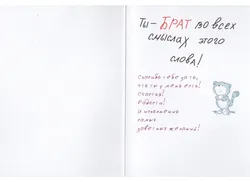 Ты - БРАТ во всех
смыслах этого
слова!
Спасибо тебе за то,
что ты у меня есть!
Счастья!
Радости!
И исполнения
самых
заветных желаний!